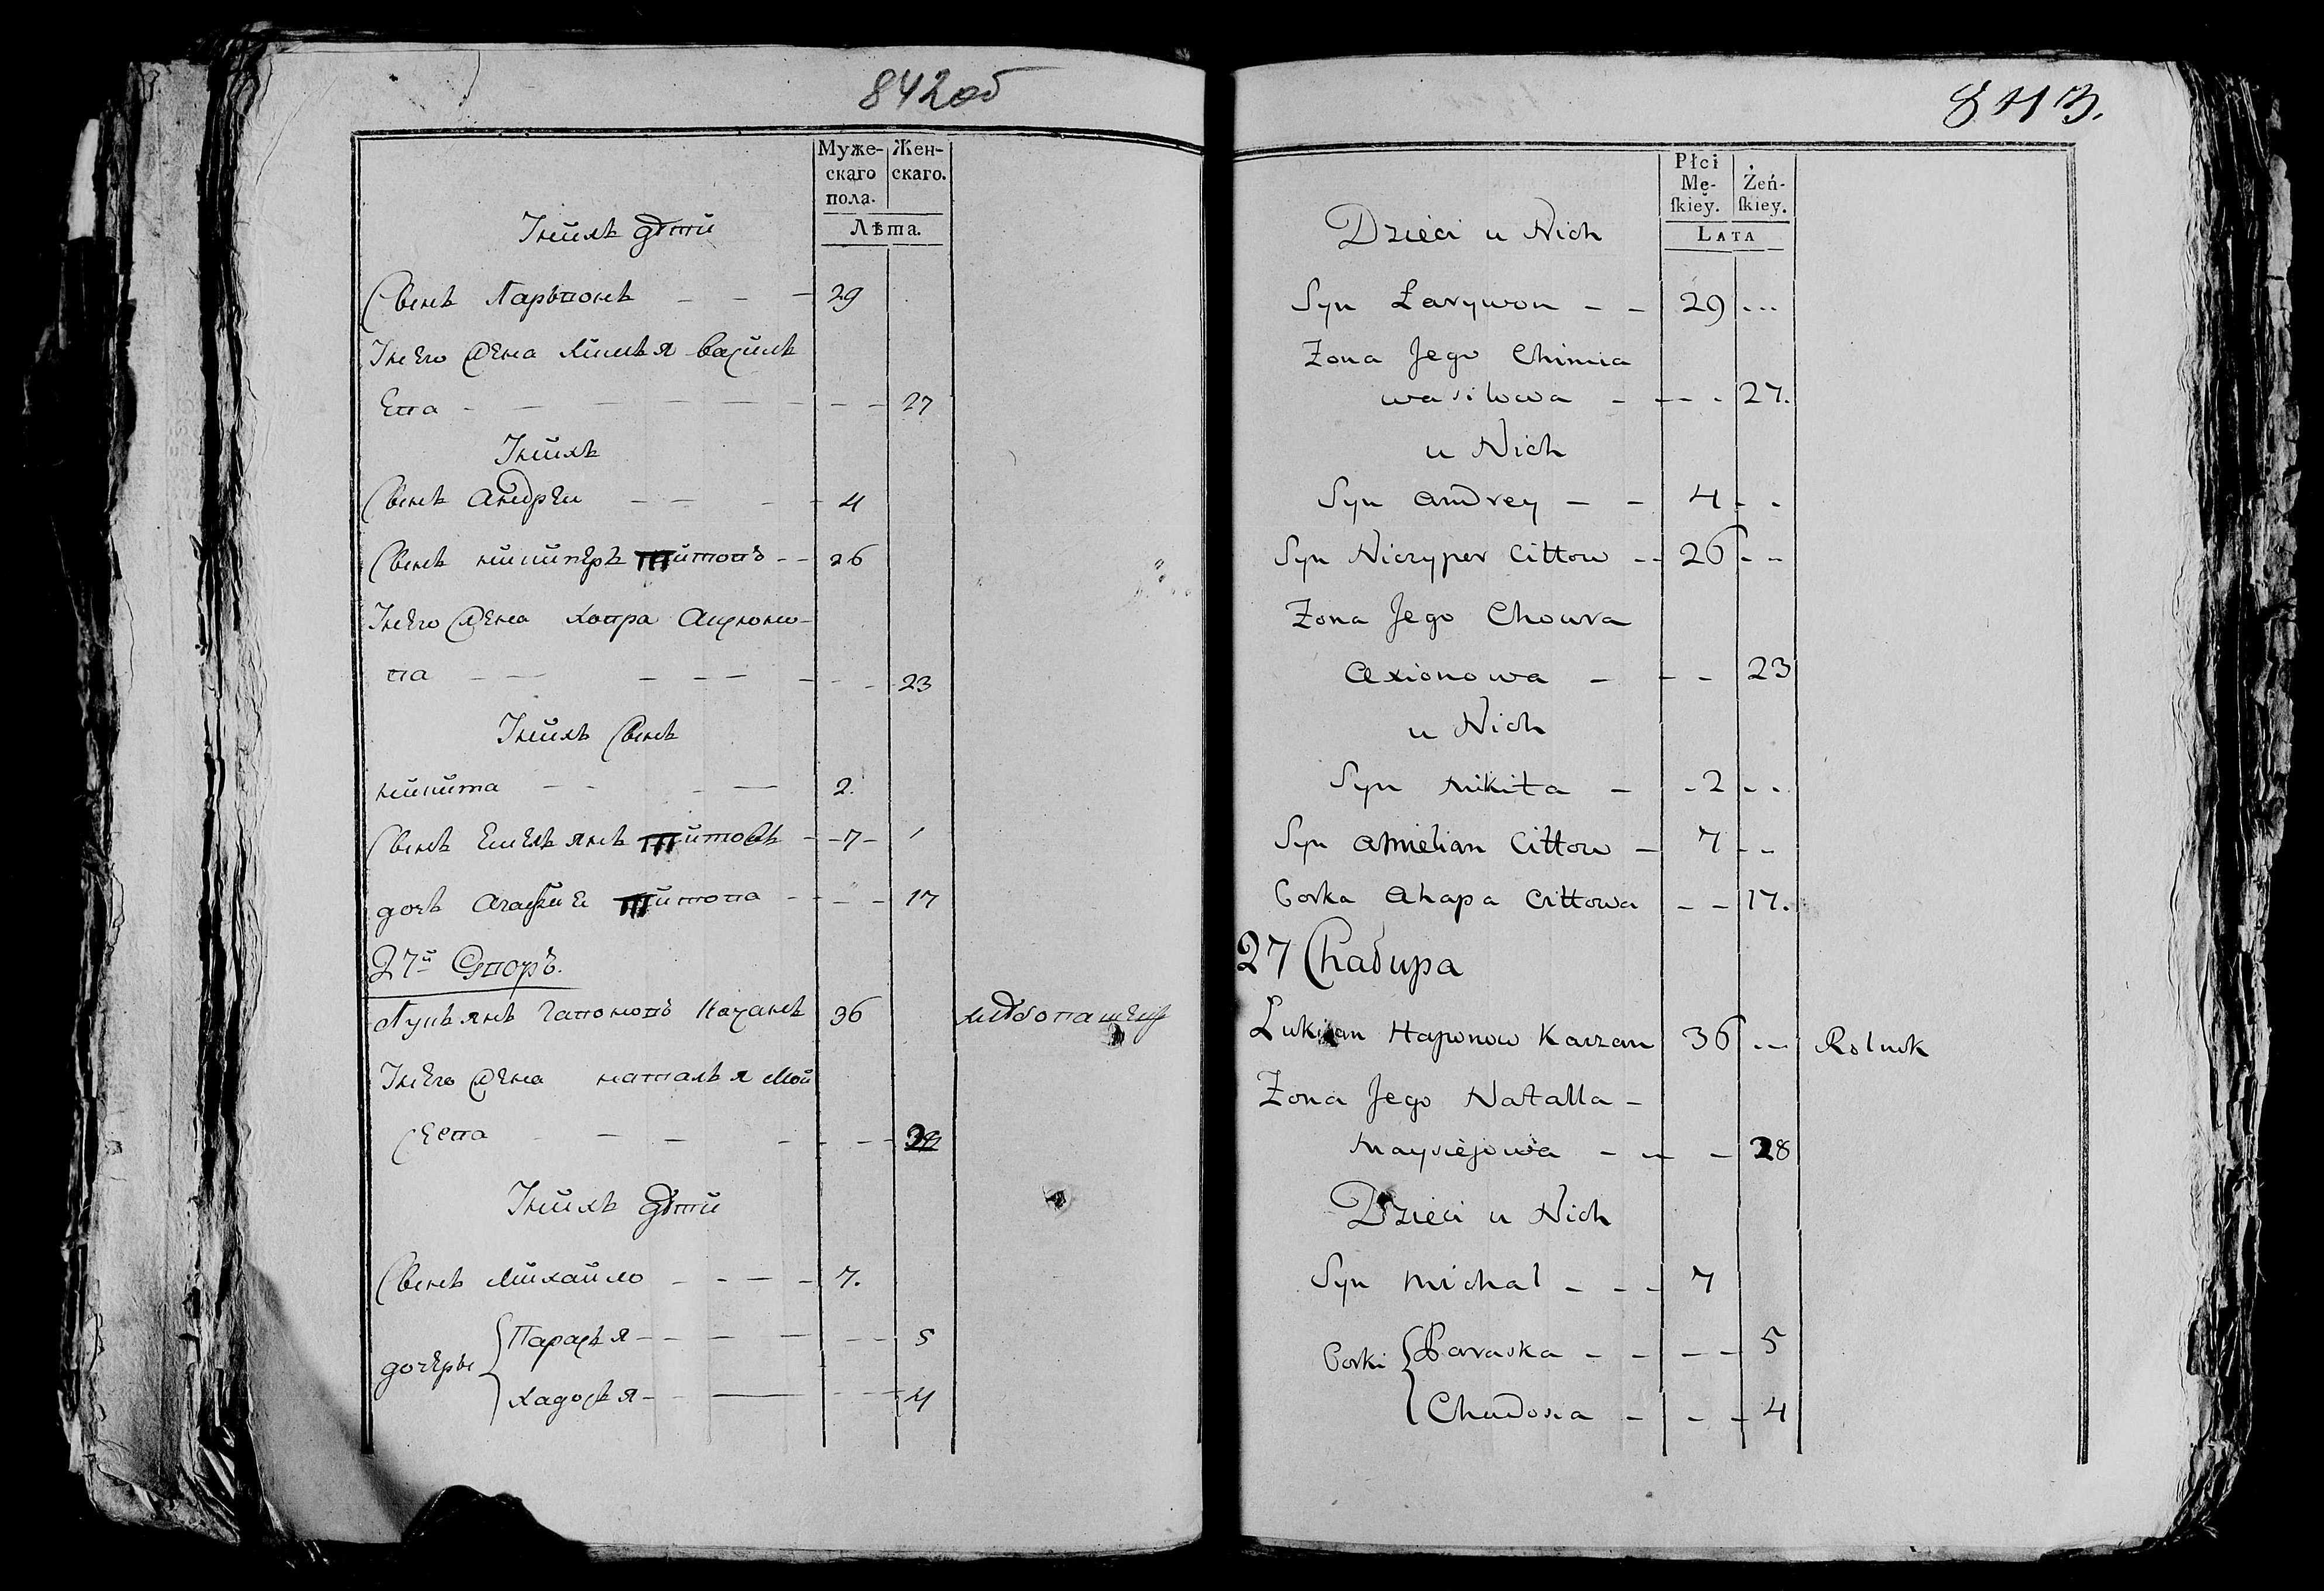 842об
Муже-
скаго
пола.
Жен-
скаго.
Лѣта.
У нихъ дѣти
Сынъ Ларывонъ - - - 29
У него жена Химья Василь
ева - - - - - - - - 27
У нихъ
Сынъ Андрей - - - - 4
Сынъ Ничиперъ Титовъ - - 26
У него жена Ховра Аксионо-
ва - - - - - - - - 23
У нихъ сынъ
Никита - - - - 2.
Сынъ Емельянъ Титовъ - 7
дочь Агафия Титова - - - - 17
27й Дворъ.
Лукьянъ Гапоновъ Казанъ 36 хлѣбопашецъ
У него жена Наталья Мои
сеева - - - - - -
У нихъ дѣти
Сынъ Михайло - - - - 7.
дочеры
Парасья - - - - - - 5
Хадосья - - - - - 4
843.
Płci
Mę-
ſkiey.
Żeń-
ſkiey.
LATA
Dzieci u Nich
Syn Łarywon - - 29 ...
Zona Jego Chimia
wasilowa - - - - 27.
u Nich
Syn Andrey - - 4 - -
Syn Niczyper Cittow - - 26 - -
Zona Jego Chowra
Axionowa - - - 23
u Nich
Syn Mikita - - 2 - -
Syn Amielian Cittow - 7 - -
Corka Ahapa Cittowa - - 17.
27 Chaдира
Lukian Haponow Kazan 36 -- Rolnik
Zona Jego Natalla -
Maysiejowa - - - 28
Dzieci u Nich
Syn Michal - - - 7
Corki
Paraska - - - - 5
Chadosia - - - 4